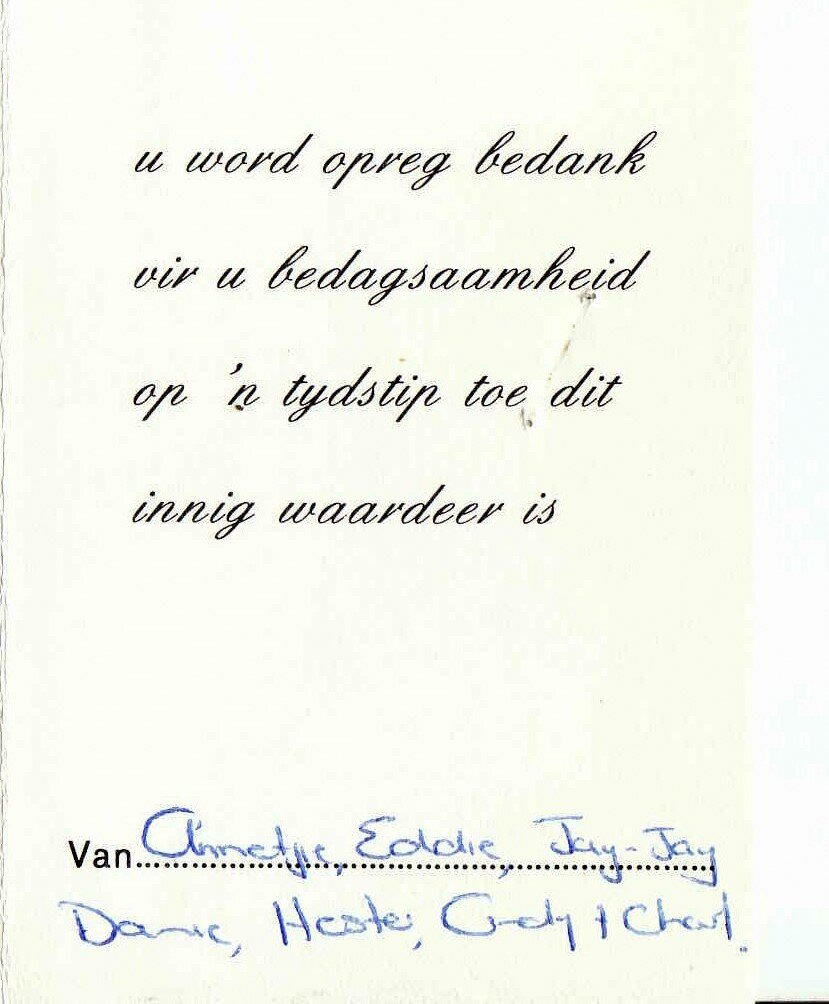 u word opreg bedank
vir u bedagsaamheid
op 'n tydstip toe dit
innig waardeer is
Van Annetjie, Eddie, Jay-Jay
Danie, Hester, Cindy + Charl.